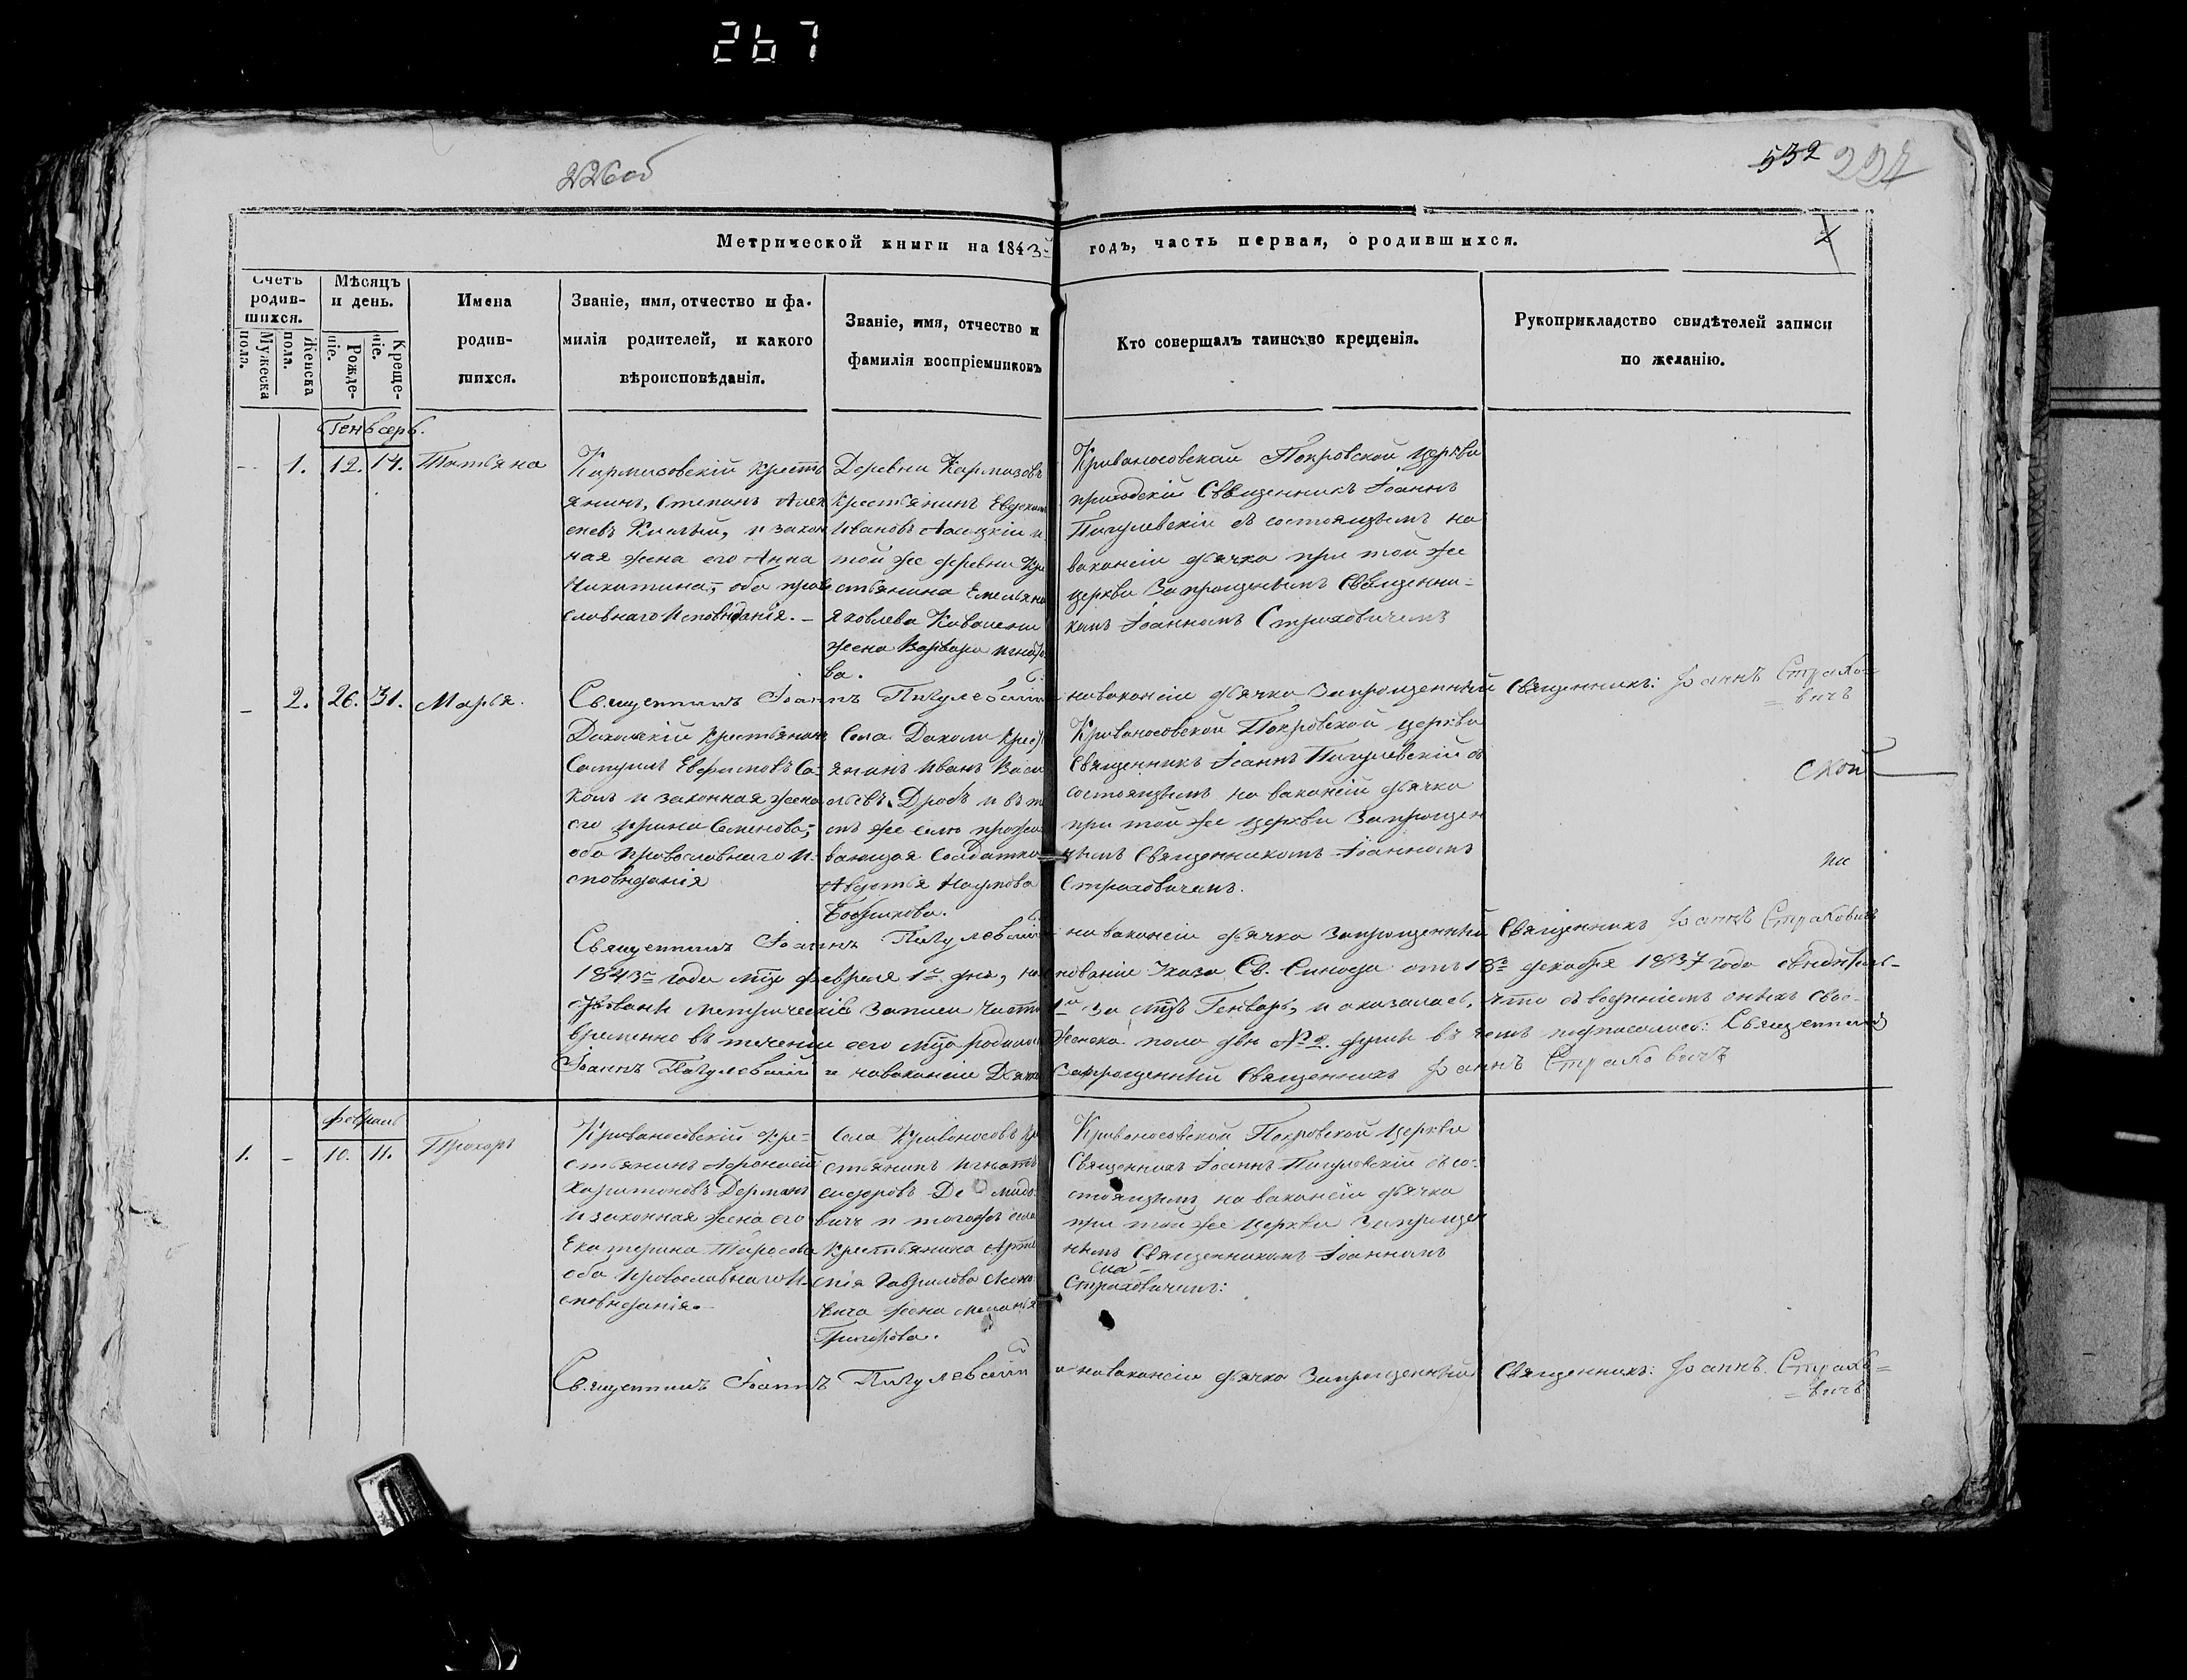 267
226об
532 227
Метрической книги на 1843й годъ, часть первая, о родившихся.
Счетъ родив-
шихся.
Мужеска
пола.
Женска
пола.
Мѣсяцъ
и день.
Рожде-
ніе.
Креще-
ніе.
Имена
родив-
шихся.
Званіе, имя, отчество и фа-
милія родителей, и какого
вѣроисповѣданія.
Званіе, имя, отчество и
фамилія воспріемниковъ
Кто совершалъ таинство крещенія.
Рукоприкладство свидѣтелей записи
по желанію.
Генварь.
- 1. 12. 14. Татьяна
Кармизовскій кресть
янинъ, Степанъ Алек
и закон
ная жена его Анна
Никитина, оба право
славнаго Исповѣданія. -
Деревни Кармизовъ
крестьянинъ
Ивановъ и
той же деревни кре
стьянина Емельяна
Яковлева
жена Варвара Игнато
ва.
Кривоносовской Покровской церкви
приходскій Священникъ Іоаннъ
Пигулевскій съ состоящимъ на
ваканcіи дьячка при той же
церкви Запрощеннымъ Священни-
комъ Іоанномъ Страховичемъ
Священникъ Іоаннъ Пигулевскій и на вакансіи дьячка Запрощенный Священникъ: Іоаннъ Страхо-
= вичъ
- 2. 26. 31. Марья.
крестьянинъ
Самуилъ Евфимовъ Са-
и законная жена
его Ирина Семенова,
оба православнаго И-
сповѣданія
Села крест
янинъ Иванъ Васи
льевъ Дробъ и въ т
омъ же селѣ прожи
вающая Солдатка
Авдотья Наумова
Кривоносовской Покровской церкви
Священникъ Іоаннъ Пигулевскій съ
состоящимъ на вакансіи дьячка
при той же церкви Запрощен
нымъ Священникомъ Іоанномъ
Страховичемъ.
ской
ни
Священникъ Іоаннъ Пигулевскій и на вакансіи дьячка Запрощенный Священникъ Іоаннъ Страховичъ
1843го года мца февраля 1го дня, на основаніи Указа Св. Синода отъ 18го декабря 1837 года свидѣтель-
ствованы метрическіе записи части 1й за мцъ Генварь, и оказалось, что съ веденіемъ оныхъ свое-
временно въ теченіи сего мца родилось Женска пола двѣ № 2. души въ чемъ подписались: Священникъ
Іоаннъ Пигулевскій и на вакансіи Дьячка Запрощенный Священникъ Іоаннъ Страховичъ
Февраль
1. - 10. 11. Прохоръ
Кривоносовскій кре-
стьянинъ Афонасій
Харитоновъ Дерманъ
и законная жена его
Екатерина Тарасова
оба православнаго И-
сповѣданія. -
Села Кривоносовъ кре
стьянинъ Игнатъ
Сидоровъ Де мидо
вичъ и тогожъ села
крестьянина Арте
мія Гаврилова
жена Меланья
Григорьева.
Кривоносовской Покровской церкви
Священникъ Іоаннъ Пигулевскій съ со-
стоящимъ на вакансіи дьячка
при той же церкви Запрощен
нымъ Священникомъ Іоанномъ
Страховичемъ:
Священникъ Іоаннъ Пигулевскій и на вакансіи дьячка Запрощенный Священникъ: Іоаннъ Страхо=
= вичъ